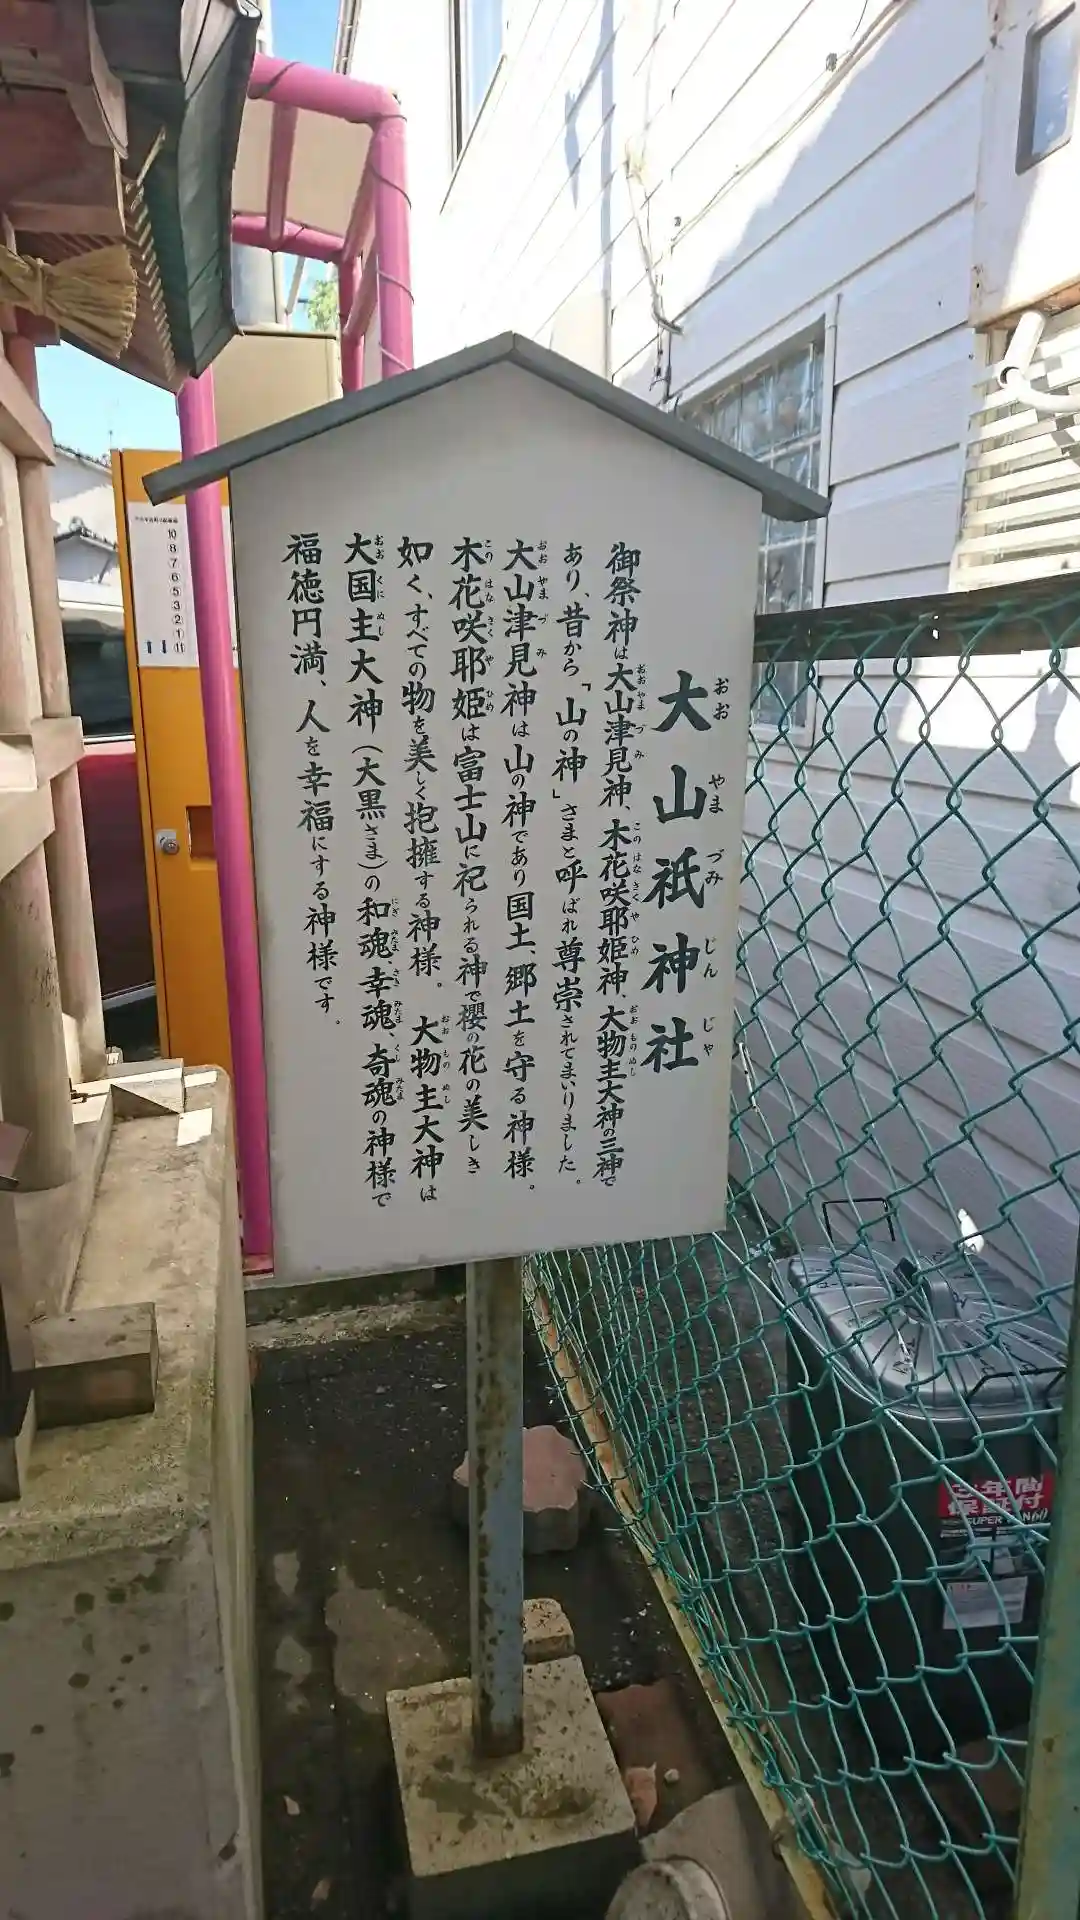 大山祇神社
おおやまづみじんじゃ
御祭神は大山津見神、木花咲耶姫神、大物主大神の三神で
あり、昔から「山の神」さまと呼ばれ尊崇されてまいりました。
大山津見神は山の神であり国土、郷土を守る神様。
木花咲耶姫は富士山に祀られる神で櫻の花の美しき
如く、すべての物を美しく抱擁する神様。 大物主大神は
大国主大神（大黒さま）の和魂、幸魂、奇魂の神様で
福徳円満、人を幸福にする神様です。
10
8
7
6
5
3
2
1
11
三年間
保証付
SUPER
60